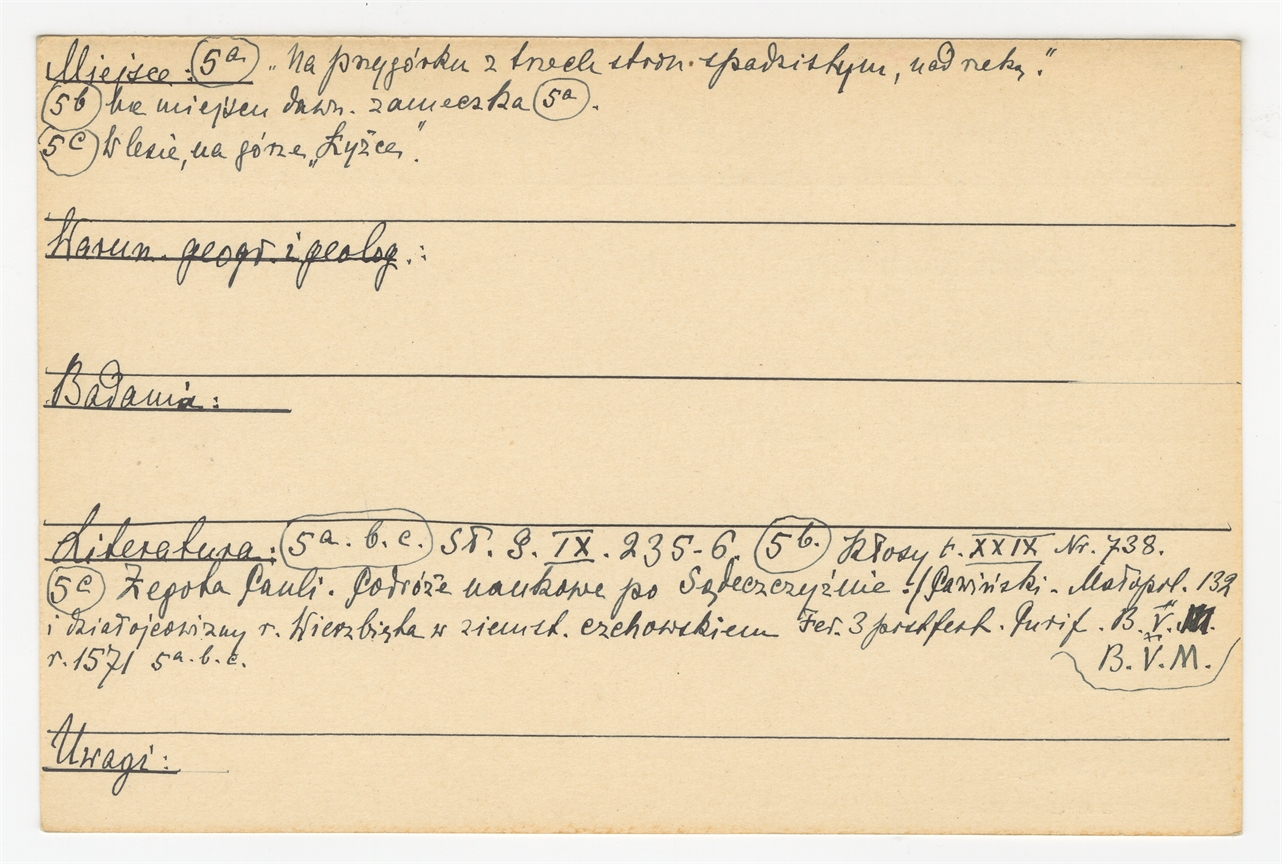 Miejsce: 5a. „Na przygórku z trzech stron spadzistym, nad rzeką."
5b na miejscu dawn. zameczka 5a.
5c W lesie, na górze „Łyżce".
Warun. geogr. i geolog.:
Badania:
Literatura: 5a. b. c. Sł. G. IX. 235-6. 5b. Kłosy t. XXIX Nr. 738.
5c Żegota Pauli. Podróże naukowe po Sądeczczyźnie / Pawiński. Małopol. 139
i działojcowizny r. Wierzbięta w ziemst. czchowskiem Fer. 3 post fest. Purif. B. V. M.
r. 1571 5a. b. c. B. V. M.
Uwagi: